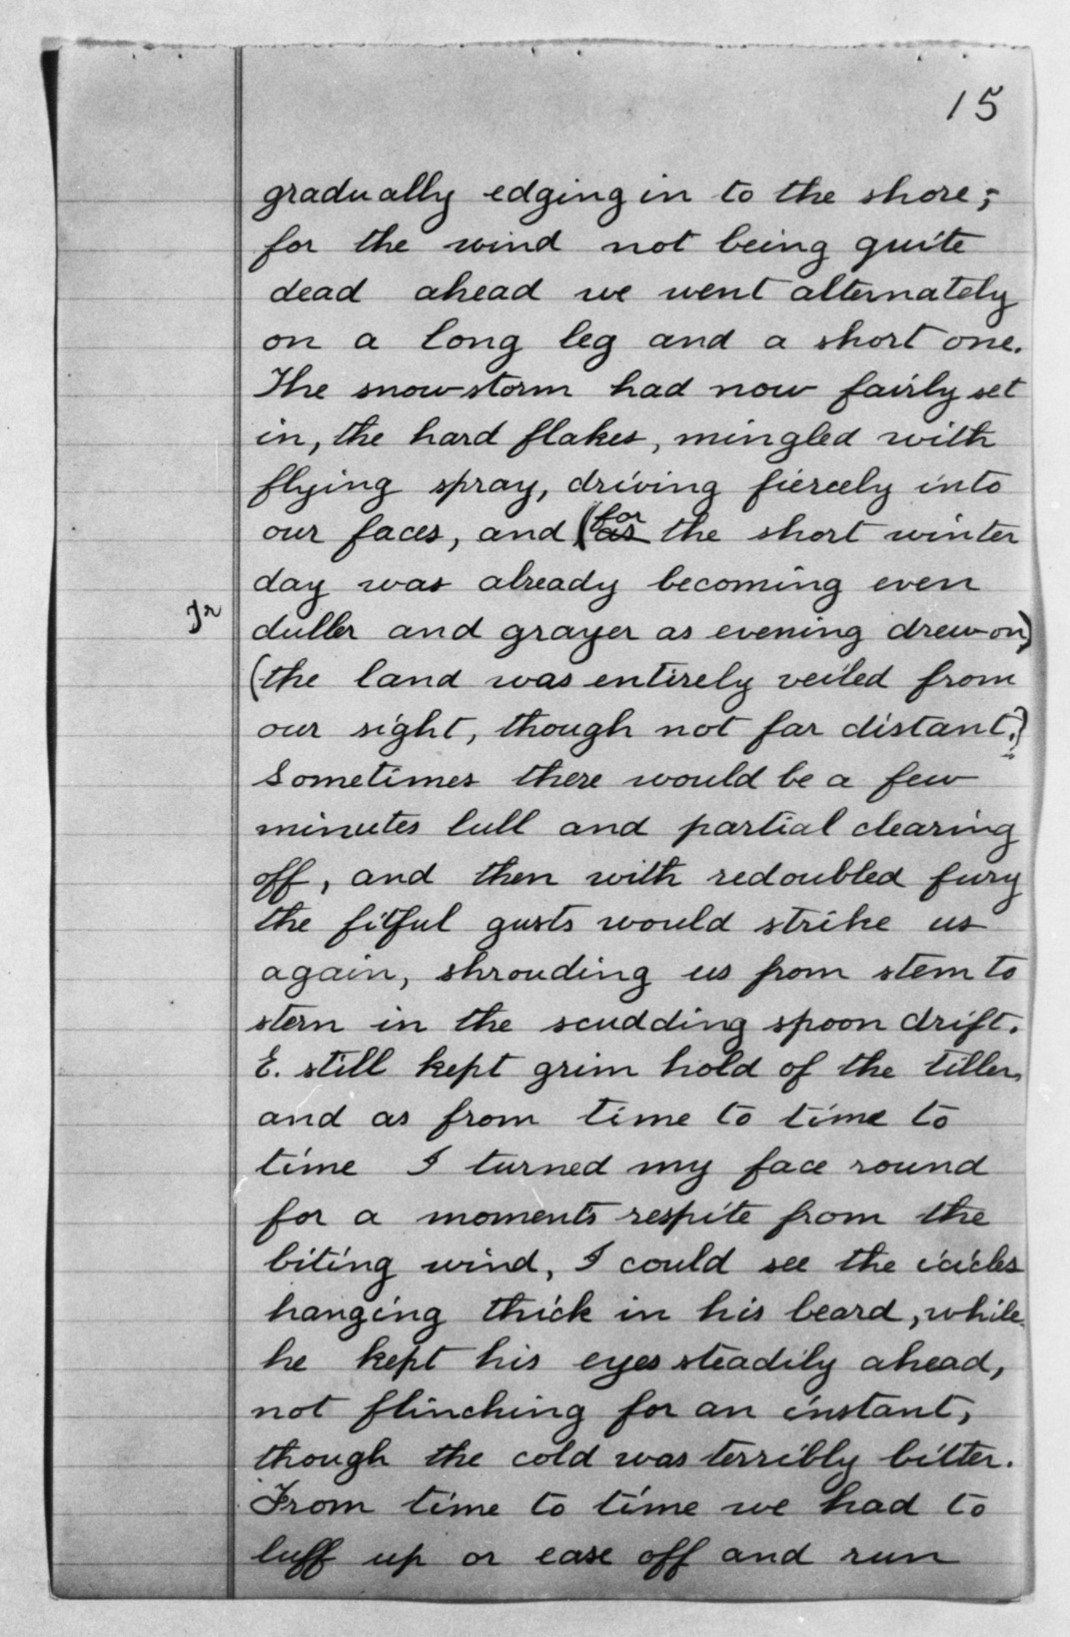 15
gradually edging in to the shore;
for the wind not being quite
dead ahead we went alternately
on a long leg and a short one.
The snow-storm had now fairly set
in, the hard flakes, mingled with
flying spray, driving fiercely into
our faces, and (for as the short winter
day was already becoming even
Tr
duller and grayer as evening drew on)
(the land was entirely veiled from
our sight, though not far distant.)
Sometimes there would be a few
minutes lull and partial clearing
off, and then with redoubled fury
the fitful gusts would strike us
again, shrouding us from stem to
stern in the scudding spoon drift.
E. still kept grim hold of the tiller,
and as from time to time to
time I turned my face round
for a moments respite from the
biting wind, I could see the icicles
hanging thick in his beard, while
he kept his eyes steadily ahead,
not flinching for an instant,
though the cold was terribly bitter.
From time to time we had to
luff up or ease off and run